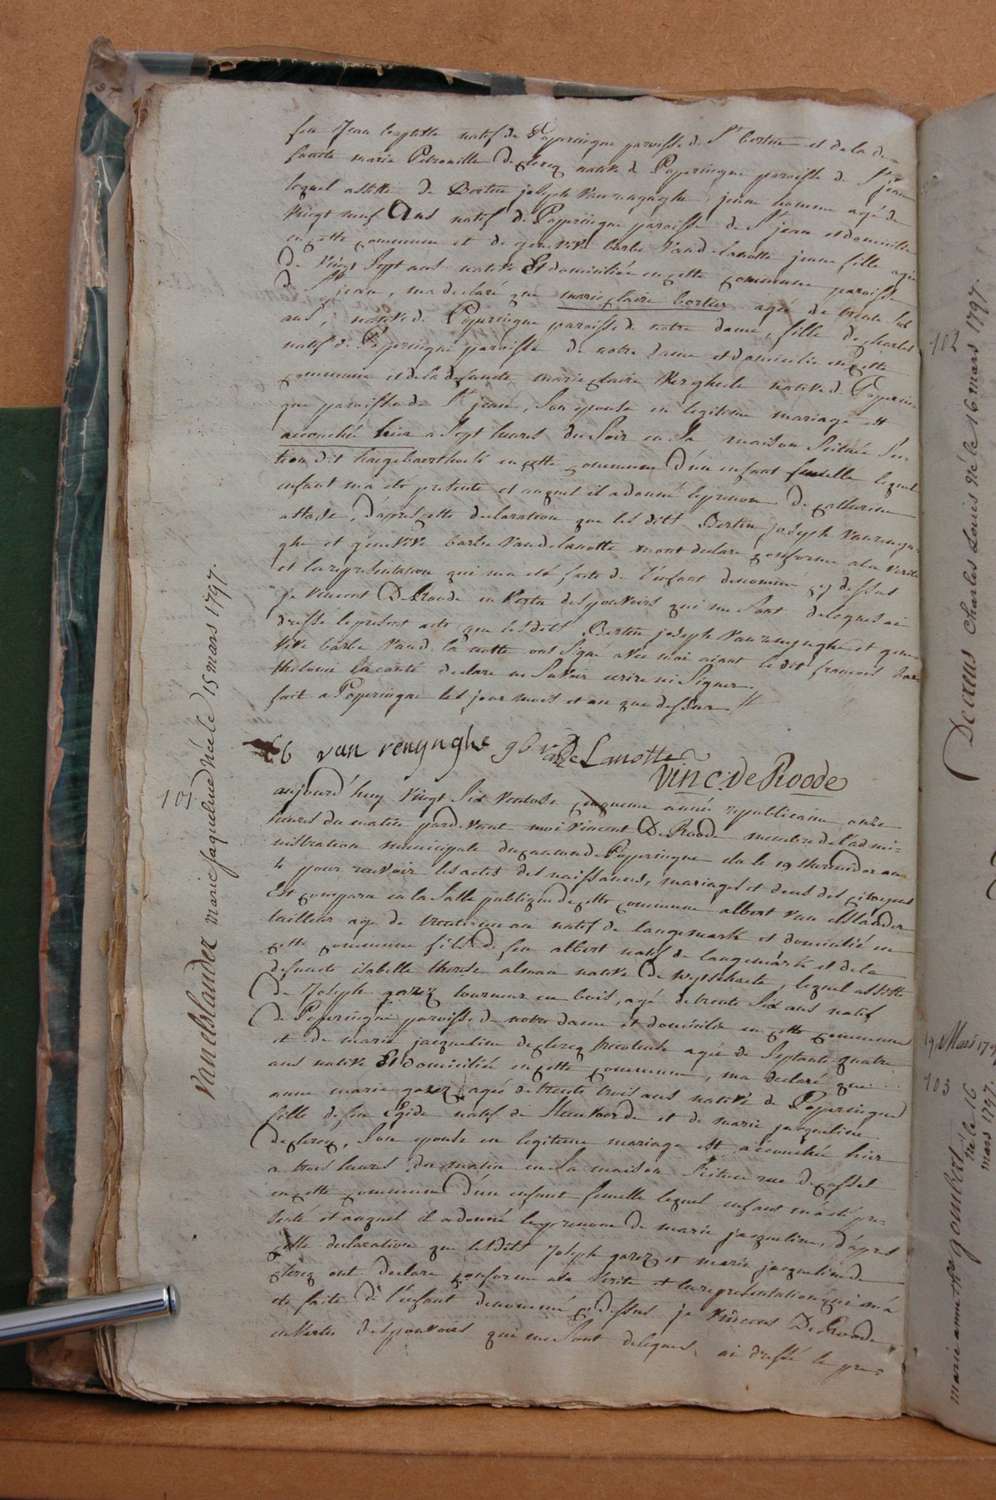 feu Jean baptiste natif de Poperingue paroisse de St bertin et de la de=
functe marie Petronille Declercq native de Poperingue paroisse de St jean
lequel assisté de Bertin joseph Vanrenynghe, jeune homme agé de
vingt neuf Ans natif de Poperingue paroisse de St jean et domicilié
en cette commune et de genevieve barbe Vandelanotte jeune fille agée
De vingt sept ans native Et domiciliée en cette commune paroisse
De St jean, ma declaré que marie claire bertier agée de trente
ans, native de Poperingue paroisse de notre dame, fille de charles
natif de Poperingue paroisse de notre dame et domicilié en cette
commune et de la defuncte marie claire Verghele native de Poperin=
gue paroisse de St jean, son epouse en legitime mariage est
accouchée hier a sept heures du soir en sa maison scituée sec=
tion dit en cette commune d'un enfant femelle lequel
enfant ma été presenté et auquel il a donné le prenom de catherine
d'apres cette declaration que les dits Bertin joseph Vanrenyn=
ghe et genevieve barbe Vandelanotte m'ont declare conforme a la verité
et la representation qui ma été faite de l'enfant denommé cy dessus
je vincent DeRoode en vertu des pouvoirs qui me sont delegués ai
dressé le present acte que les dits Bertin joseph Vanrenynghe et gene=
vieve barbe Vand la notte ont signé avec moi aiant le dit francois bar=
tholomé declare ne savoir ecrire ni signer.
fait a Poperingue les jour mois et an que dessus //
b van renynghe g b vande Lanotte
Vinc. De Roode
101
vanelslander marie jaqueline née le 15 mars 1797.
aujourd'huy vingt six ventose cinqueme année republicaine onze
heures du matin pardevant moi Vincent DeRoode membre de l'admi=
nistration municipale du canton de Poperingue elu le 19 thermidor an
4 pour recevoir les actes des naissances, mariages et deces des citoyens
Est comparu en la salle publique de cette commune albert van elslander
tailleur agé de trente un an natif de langemarck et domicilié en
cette commune fils de feu albert natif de langemarck et de la
defuncte isabelle therese aleman native de wytschaete, lequel assisté
De Joseph gorez tourneur en bois, agé de trente six ans natif
De Poperingue paroisse de notre dame et domicilié en cette commune
et de marie jacqueline declercq agée de septante quatre
ans native Et domiciliée en cette commune, ma declaré que
anne marie gorez agée de trente trois ans native de Poperingue
fille de feu Egide natif de Steenvoorde et de marie jacqueline
declercq, son epouse en legitime mariage est accouchée hier
a trois heures du matin en sa maison scituée rue de cassel
en cette commune d'un enfant femelle lequel enfant ma été pre=
senté et auquel il a donné le prenom de marie jacqueline, d'apres
cette declaration que les dits Joseph gorez et marie jacqueline de
clercq ont declaré conforme a la verite et la representation qui m'a
été faite de l'enfant denommé cy dessus je Vincent DeRoode
en vertu des pouvoirs qui me sont delegués, ai dressé le pre=
102
Deraus Charles Louis né le 16 mars 1797.
103
marie anne th. goubert
né le 16
mars 1797